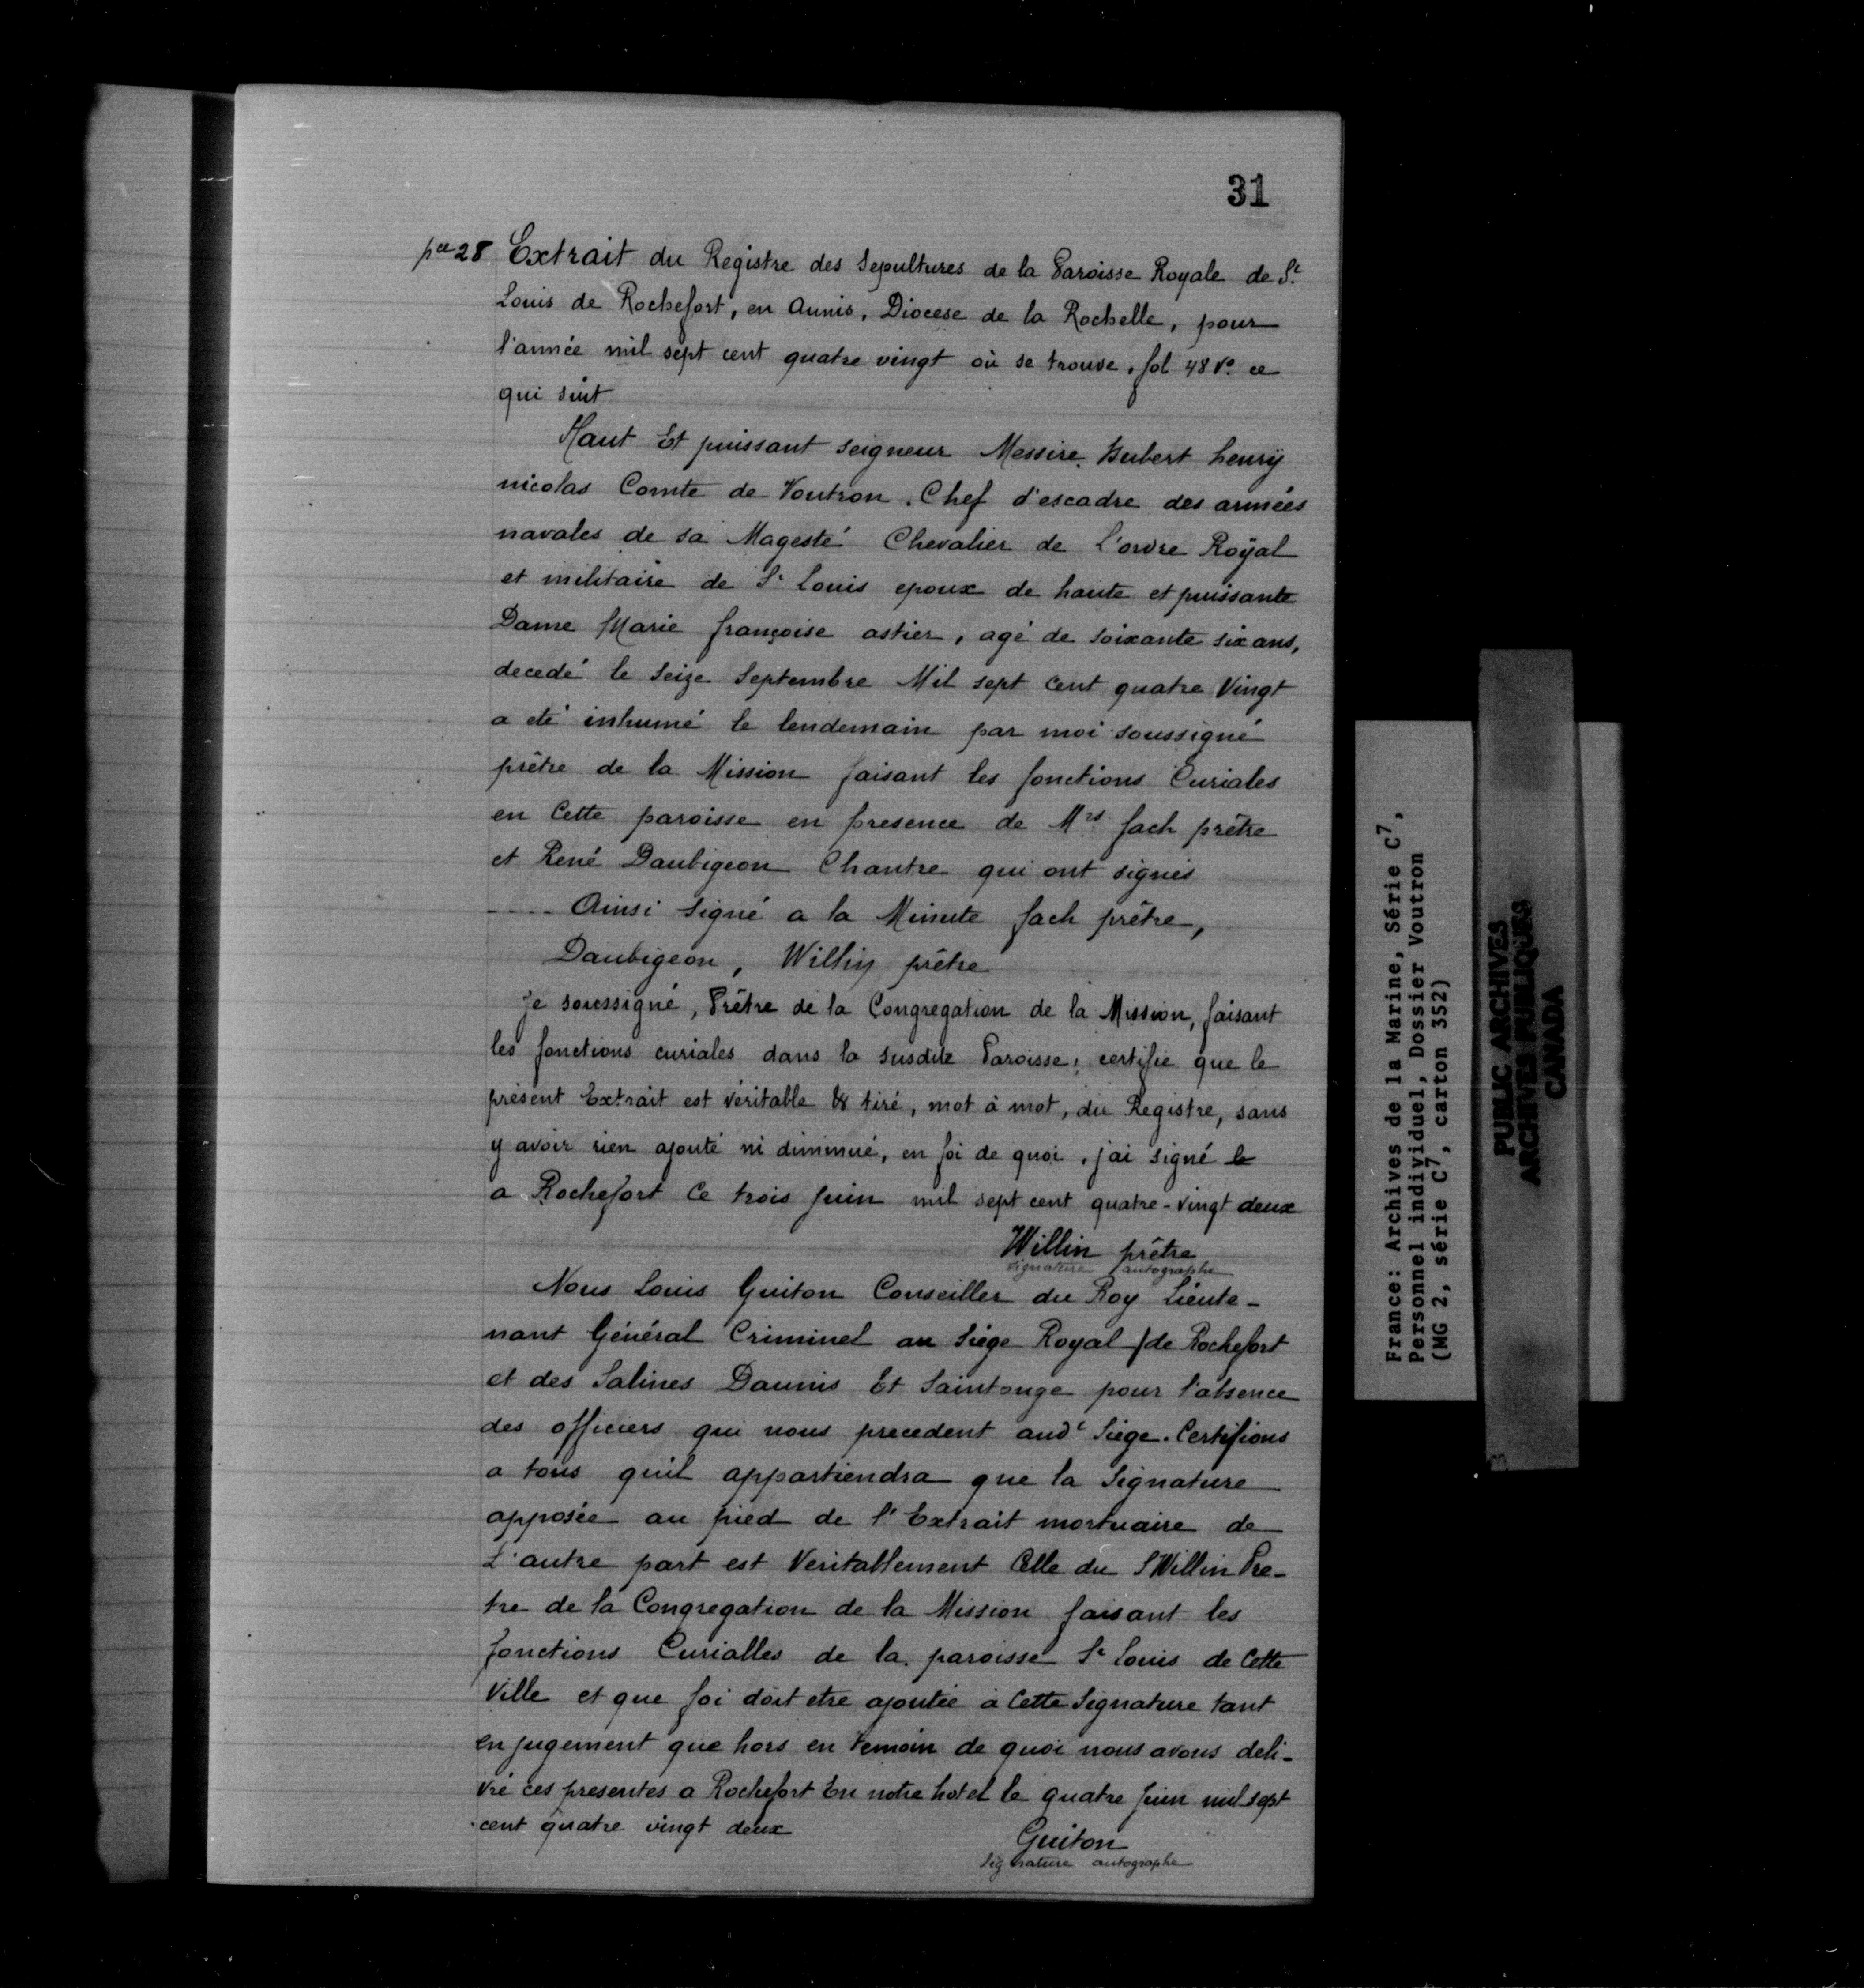 31
pce 28 Extrait du Registre des Sepultures de la Paroisse Royale de St
Louis de Rochefort, en Aunis, Diocese de la Rochelle, pour
l'année mil sept cent quatre vingt où se trouve, fol 48 Vo ce
qui suit
Haut Et puissant Seigneur Messire hubert henrÿ
nicolas Comte de Voutron. Chef d'escadre des armées
navales de sa Magesté Chevalier de L'ordre Roÿal
et militaire de St Louis epoux de haute et puissante
Dame Marie françoise astier, agé de soixante six ans,
decedé le Seize Septembre Mil sept Cent quatre Vingt
a eté inhumé le lendemain par moi soussigné
prêtre de la Mission faisant les fonctions Curiales
en Cette paroisse en presence de Mrs fach prêtre
et René Daubigeon Chantre qui ont signés
.... Ainsi Signé a la Minute fach prêtre,
Daubigeon, Willin prêtre
Je soussigné, Prêtre de la Congregation de la Mission, faisant
les fonctions curiales dans la susdite Paroisse, certifie que le
présent Extrait est véritable & tiré, mot à mot, du Registre, sans
y avoir rien ajouté ni diminué, en foi de quoi, j'ai signé le
a Rochefort Ce trois juin mil sept cent quatre-vingt deux
Willin prêtre
signature autographe
Nous Louis Guiton Conseiller du Roy Lieute-
nant Général Criminel au Siége Royal de Rochefort
et des Salines Daunis Et Saintonge pour l'absence
des officiers qui nous precedent audt Siege. Certifions
a tous qu'il appartiendra que la Signature
apposée au pied de l'Extrait mortuaire de
L'autre part est Veritablement Celle du S Willin Pre-
tre de la Congregation de la Mission faisant les
fonctions Curialles de la paroisse St Louis de Cette
Ville et que foi doit etre ajoutée à Cette Signature tant
en jugement que hors en temoin de quoi nous avons deli-
vré ces presentes a Rochefort En notre hotel le quatre juin mil sept
cent quatre vingt deux
Guiton
Signature autographe
France: Archives de la Marine, Série C7,
Personnel individuel, Dossier Voutron
(MG 2, série C7, carton 352)
PUBLIC ARCHIVES
ARCHIVES PUBLIQUES
CANADA